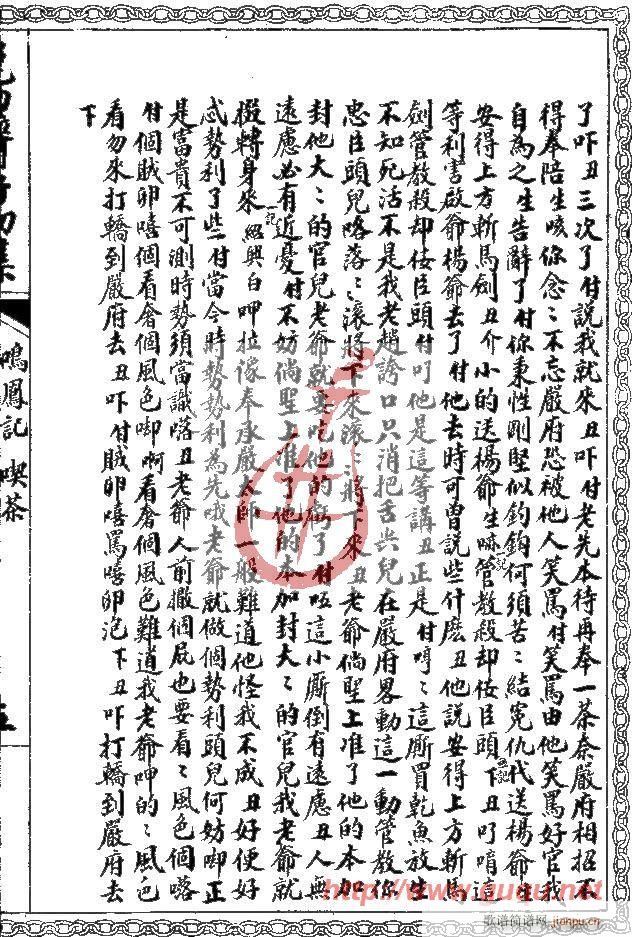 了吓丑三次了付說我就來丑吓付老先本待再奉一茶奈嚴府相招不
得奉陪生咳你念〻不忘嚴府恐被他人笑罵付笑罵由他笑罵好官我
自為之生告辭了付你秉性剛堅似鈞鉤何須苦〻結冤仇代送楊爺生
安得上方斬馬劍丑介小的送楊爺生嘛管教殺却佞臣頭下丑叮唷這
等利害啟爺楊爺去了付他去時可曽説些什麽丑他說安得上方斬馬
劍管教殺却佞臣頭付叮他是這等講丑正是付哼〻這厮買乾魚放生
不知死活不是我老趙誇口只消把舌尖兒在嚴府畧動這一動管教你
忠臣頭兒咯落〻滾將下來滾〻將下來丑老爺倘聖上准了他的本加
封他大〻的官兒老爺就要吃他的虧了付呸這小厮倒有遠慮丑人無
遠慮必有近憂付不妨倘聖上准了他的本加封大〻的官兒我老爺就
掇轉身來紹興白呷拉像奉承嚴太師一般難道他怪我不成丑好便好
忒勢利了些付當今時勢勢利為先哦老爺就做個勢利頭兒何妨啣正
是富貴不可測時勢須當識咯丑老爺人前撒個屁也要看〻風色個咯
付個賊卵嘻個看奢個風色啣啊看奢個風色難道我老爺呷的〻風色
看勿來打轎到嚴府去丑吓付賊卵嘻罵嘻卵泡下丑吓打轎到嚴府去
下
鳴鳳記 喫茶
五
http://www.ququ.net
歌谱简谱网 jianpu.cn